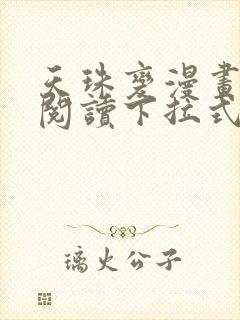 天珠變漫畫
閱讀下拉式
璃火公子